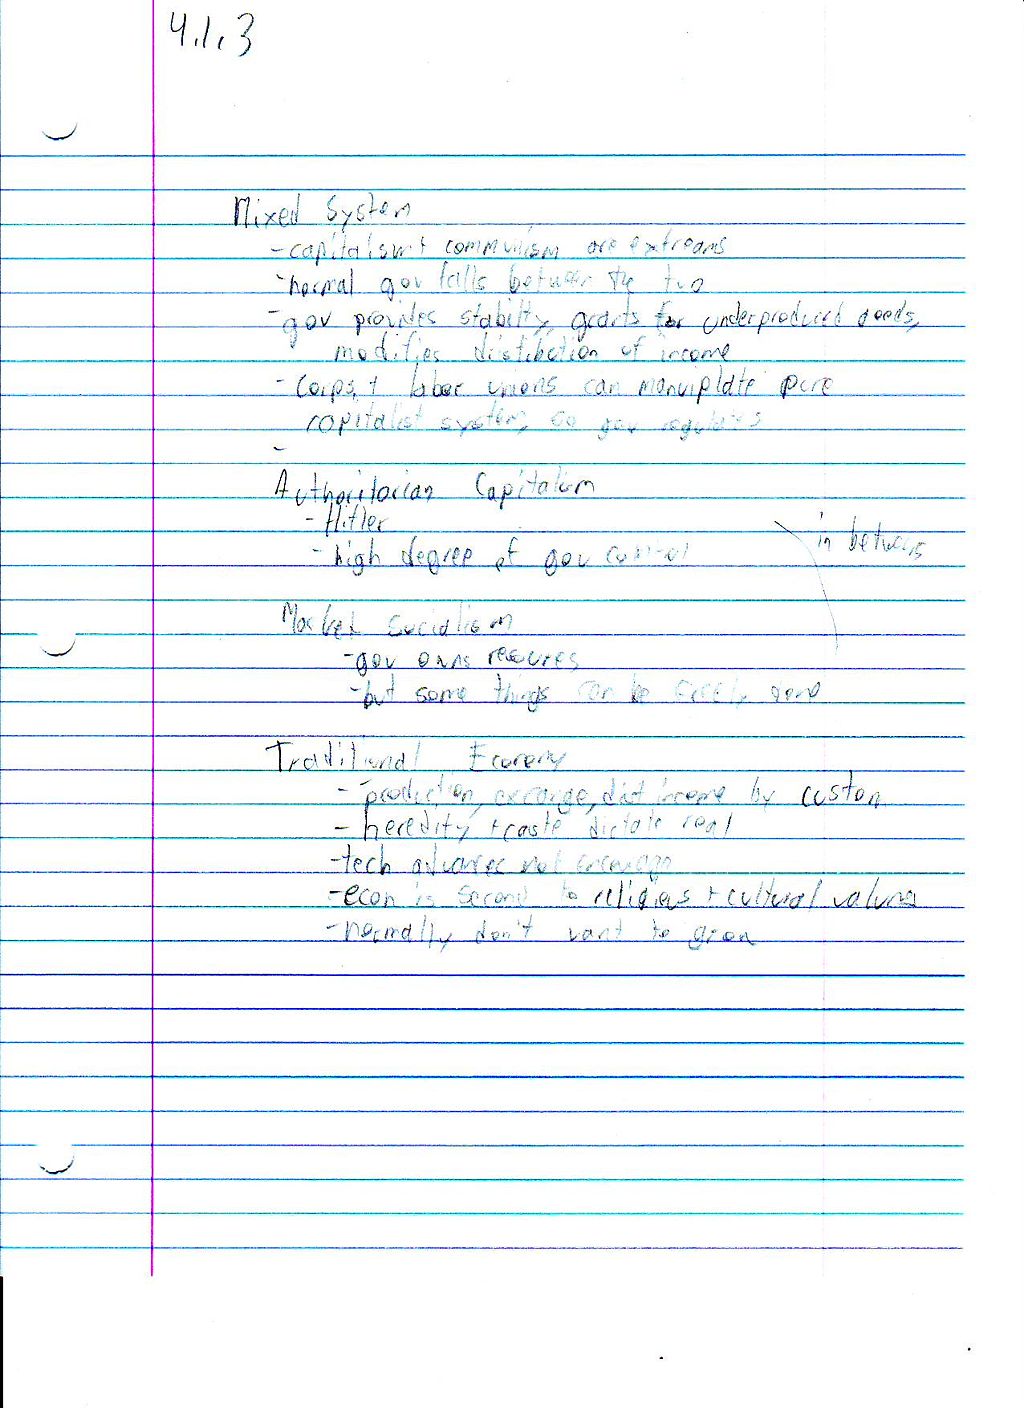 4.1.3
Mixed System
- capitalism + communism are extreams
- normal gov falls between the two
- gov provides stabilty, grants for underproduced goods,
modifies distibution of income
- Corps. + labor unions can manuiplate pure
capitalist system, so gov regulates
-
Authoritarian Capitalism
- Hitler
- high degree of gov control
in between
Market Socialism
- gov owns resources
- but some things can be freely
Traditional Economy
- production, exchange, dist income by custom
- heredity + caste dictate
- tech advances not
- econ is second to religious + cultural values
- normally don't want to grow